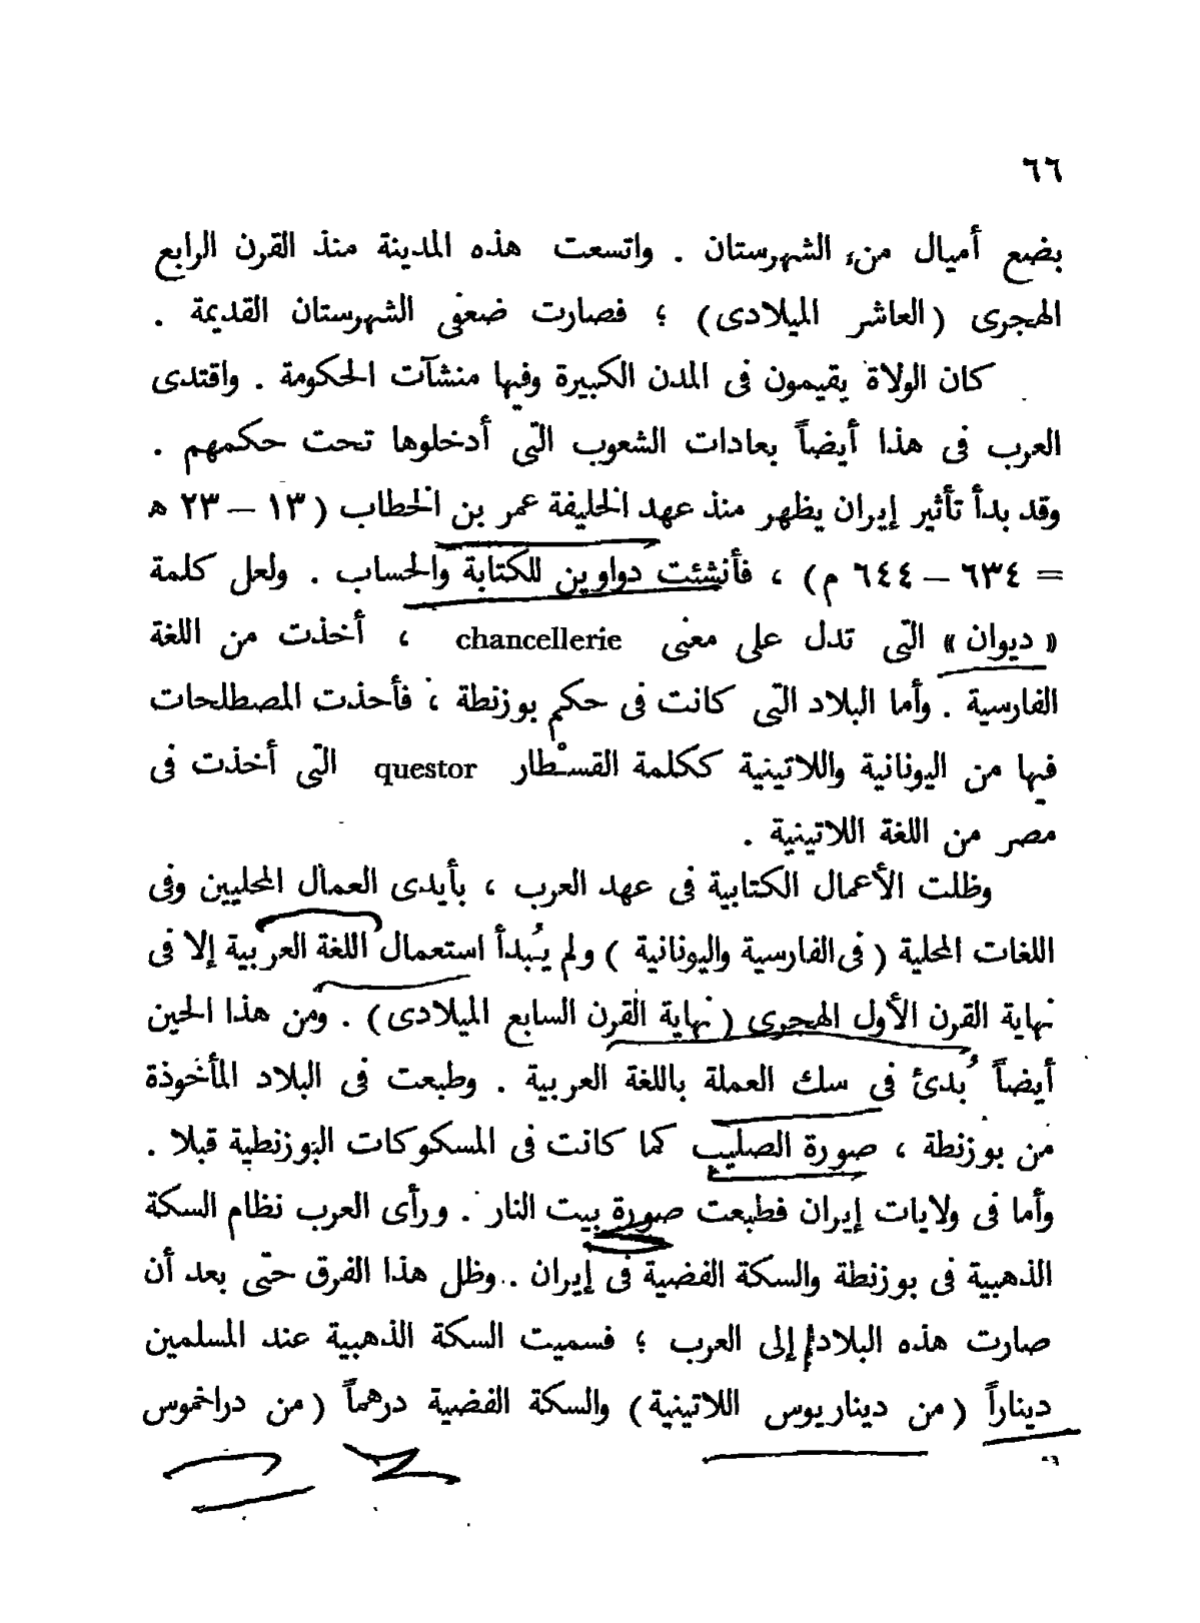 ٦٦
بضع أميال من، الشهرستان . واتسعت هذه المدينة منذ القرن الرابع
الهجرى (العاشر الميلادى) ؛ فصارت ضعفى الشهرستان القديمة .
كان الولاة يقيمون فى المدن الكبيرة وفيها منشآت الحكومة . واقتدى
العرب فى هذا أيضاً بعادات الشعوب التى أدخلوها تحت حكمهم .
وقد بدأ تأثير إيران يظهر منذ عهد الخليفة عمر بن الخطاب (١٣ – ٢٣ ه
= ٦٣٤ – ٦٤٤ م) ، فأنشئت دواوين للكتابة والحساب . ولعل كلمة
« ديوان » التى تدل على معنى chancellerie ، أخذت من اللغة
الفارسية . وأما البلاد التى كانت فى حكم بوزنطة ، فأحذت المصطلحات
فيها من اليونانية واللاتينية ككلمة القسْطار questor التى أخذت فى
مصر من اللغة اللاتينية .
وظلت الأعمال الكتابية فى عهد العرب ، بأيدى العمال المحليين وفى
اللغات المحلية (فى الفارسية واليونانية ) ولم يُبدأ استعمال اللغة العربية إلا فى
نهاية القرن الأول الهجرى (نهاية القرن السابع الميلادى) . ومن هذا الحين
أيضاً بُدئ فى سك العملة باللغة العربية . وطبعت فى البلاد المأخوذة
من بوزنطة ، صورة الصليب كما كانت فى المسكوكات البوزنطية قبلا .
وأما فى ولايات إيران فطبعت صورة بيت النار . ورأى العرب نظام السكة
الذهبية فى بوزنطة والسكة الفضية فى إيران .. وظل هذا الفرق حتى بعد أن
صارت هذه البلاد إلى العرب ؛ فسميت السكة الذهبية عند المسلمين
ديناراً (من ديناريوس اللاتينية) والسكة الفضية درهماً (من دراخموس